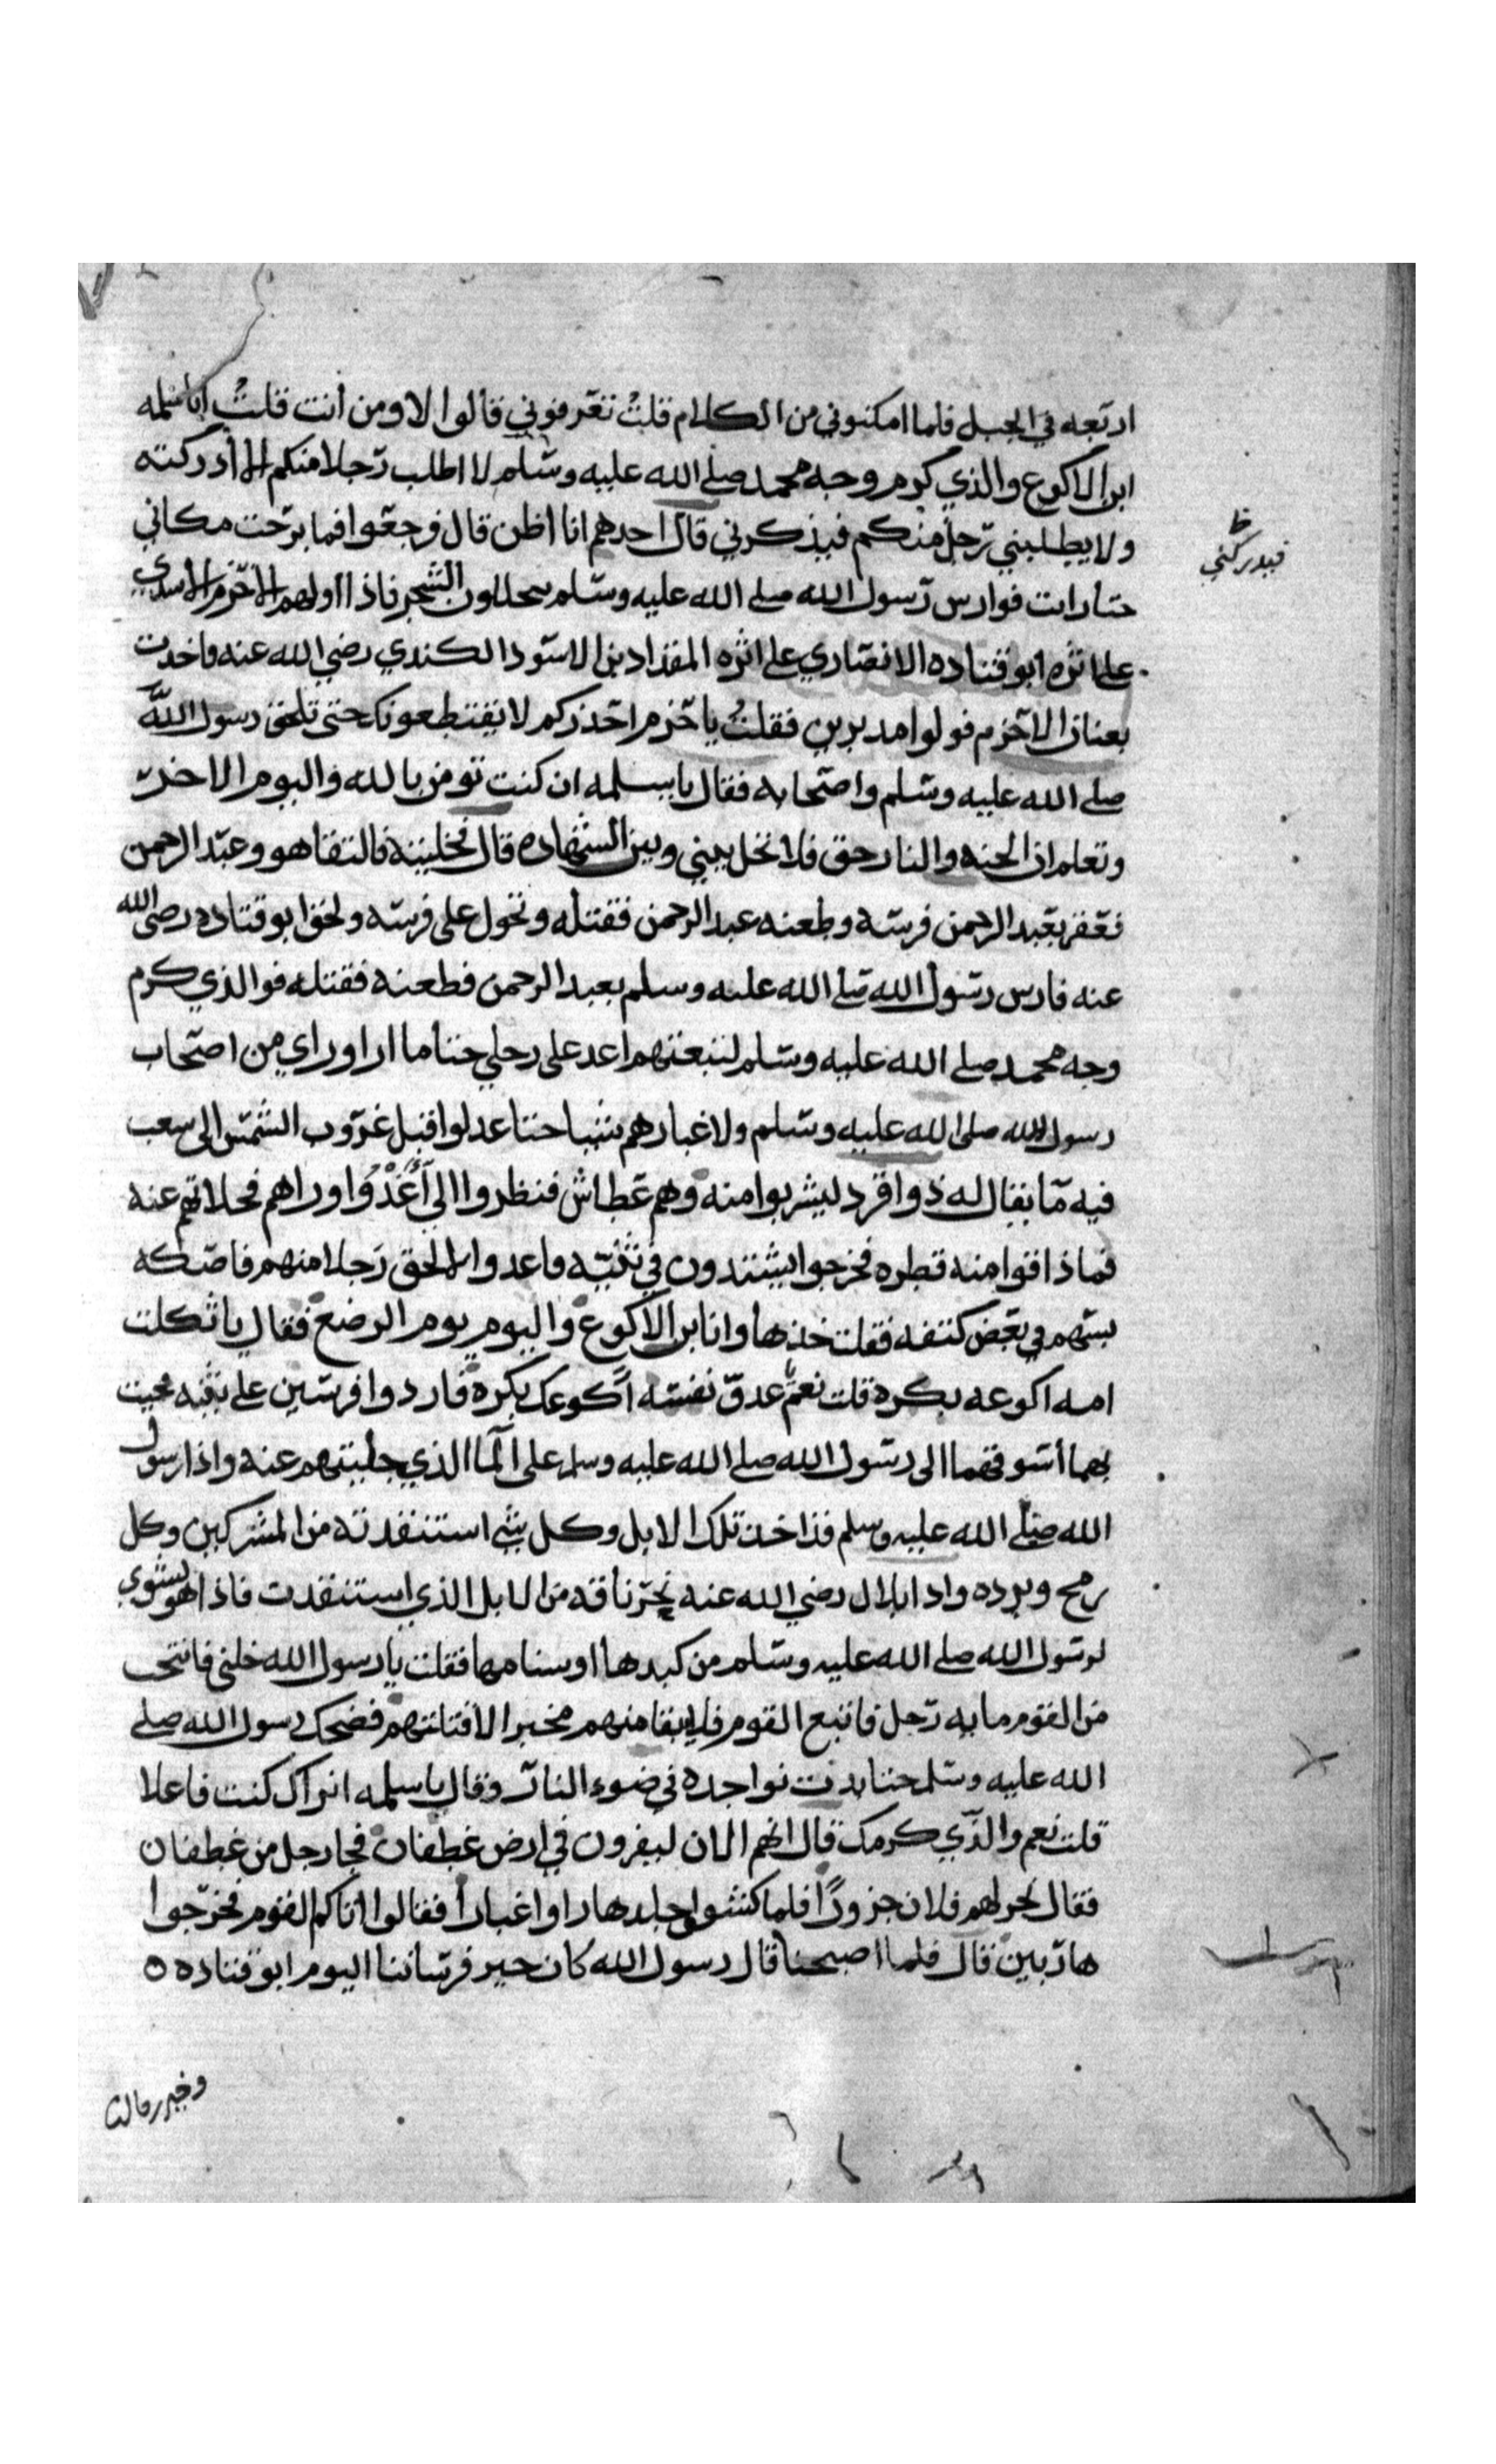 اربعه في الجبل فلما امكنوني من الكلام قلت تعرفوني قالوا لا ومن انت قلت انا سلمه
ابن الاكوع والذي كرم وجه محمد صلى الله عليه وسلم لا اطلب رجلا منكم الا أدركته
ولا يطلبني رجل منكم فيذكرني قال احدهم انا اظن قال فرجعوا فما برحت مكاني
فيدركني
حتا رايت فوارس رسول الله صلى الله عليه وسلم يتخللون الشجر فاذا اولهم الاخزم الاسدي
على اثره ابو قتاده الانصاري على اثره المقداد بن الاسود الكندي رضي الله عنه فاخذت
بعنان الاخزم فولوا مدبرين فقلت ياخزم احذركم لا يقتطعونك حتى تلحق رسول الله
صلى الله عليه وسلم واصحابه فقال ياسلمه ان كنت تومن بالله واليوم الاخر
وتعلم ان الجنه والنار حق فلا تخل بيني وبين الشهاده قال فخليته فالتقا هو وعبد الرحمن
فعقر بعبد الرحمن فرسه وطعنه عبد الرحمن فقتله وتحول على فرسه ولحق ابو قتاده رضى الله
عنه فارس رسول الله صلى الله عليه وسلم بعبد الرحمن فطعنه فقتله فوالذي كرم
وجه محمد صلى الله عليه وسلم لتبعتهم اعد على رجلي حتا ما ارا وراي من اصحاب
رسول الله صلى الله عليه وسلم ولا غبارهم شيا حتا عدلوا قبل غروب الشمس الى سعب
فيه ما يقال له ذوا قرد ليشربوا منه وهم عطاش فنظروا الي أَغْدُوا وراهم فحلاتهم عنه
فما ذاقوا منه قطره فخرجوا يشتدون في ثنيه فاعدوا لالحق رجلا منهم فاصكه
بسهم في بعض كتفه فقلت خذها وانا بن الاكوع واليوم يوم الرضع فقال ياثكلت
امه اكوعه بكره قلت نعم عدو نفسه أكوعك بكرة فاردوا فرسين على ثنيه فجيت
بهما أسوقهما الى رسول الله صلى الله عليه وسلم على الما الذي حليتهم عنه واذا رسول
الله صلى الله عليه وسلم قد اخذ تلك الابل وكل شي استنقدته من المشركين وكل
رمح وبرده واذا بلال رضي الله عنه نحر ناقه من الابل الذي استنقدت فاذا هو يشوي
لرسول الله صلى الله عليه وسلم من كبدها او سنامها فقلت يا رسول الله خلني فانتخب
من القوم مايه رجل فاتبع القوم فلا يبقا منهم مخبر الا قتلتهم فضحك رسول الله صلى
الله عليه وسلم حتا بدت نواجده في ضوء النار وقال ياسلمه اتراك كنت فاعلا
قلت نعم والذي كرمك قال انهم الان ليفرون في ارض غطفان فجا رجل من غطفان
فقال نحر لهم فلان جزورًا فلما كشوا جلدها راوا غبارا فقالوا اتاكم القوم فخرجوا
هاربين قال فلما اصبحنا قال رسول الله كان خير فرساننا اليوم ابو قتاده
وخير رجالتنا